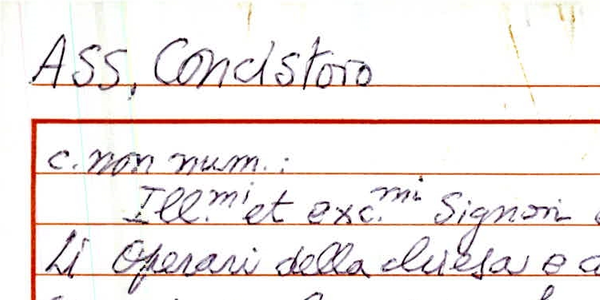 ASS, Concistoro
c. non num.:
Ill.mi et exc.mi Signori
Li Operari della chiesa